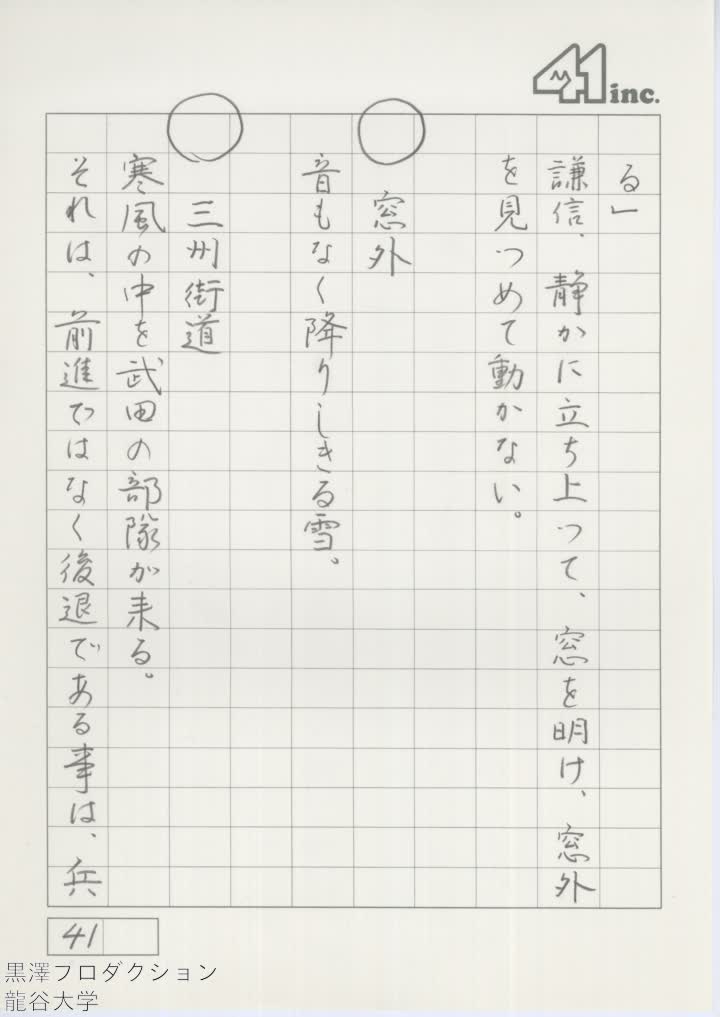 41 inc.
る」
謙信、静かに立ち上つて、窓を明け、窓外
を見つめて動かない。
○　窓外
音もなく降りしきる雪。
○　三州街道
寒風の中を武田の部隊が来る。
それは、前進ではなく後退である事は、兵
41
黒澤フロダクション
龍谷大学